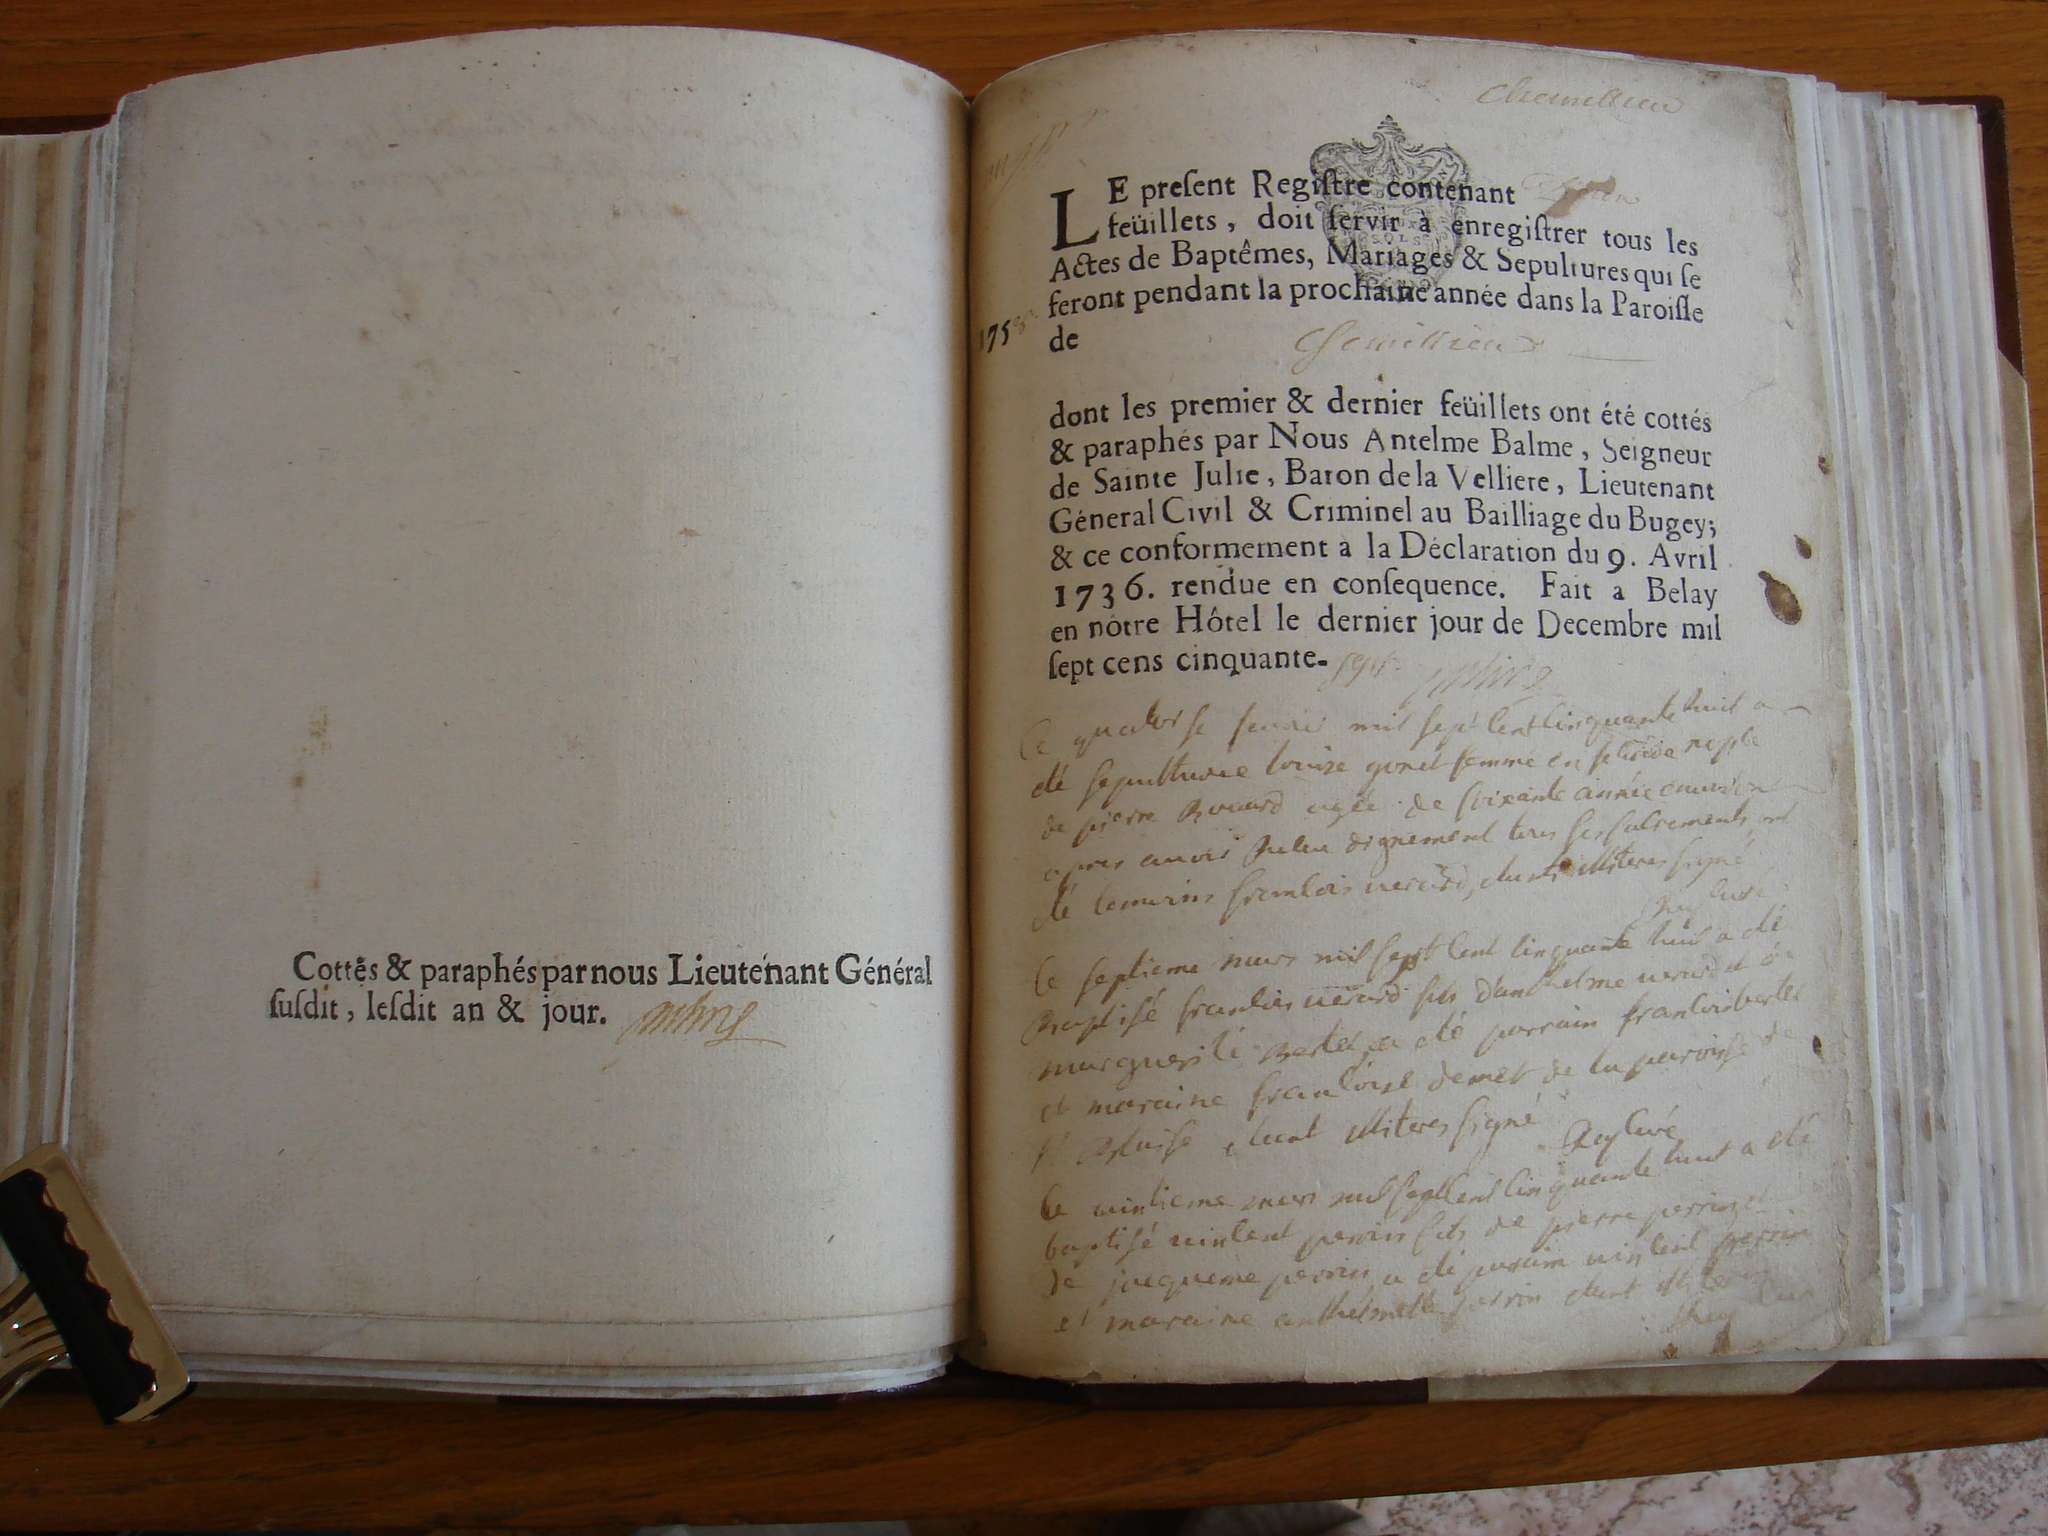 Cottés & paraphés par nous Lieutenant Général
susdit, lesdit an & jour.
Chemillieu
LE present Registre contenant
feüillets, doit servir à enregistrer tous les
Actes de Baptêmes, Mariages & Sepultures qui se
feront pendant la prochaine année dans la Paroisse
1758
de Chemillieu
dont les premier & dernier feüillets ont été cottés
& paraphés par Nous Antelme Balme, Seigneur
de Sainte Julie, Baron de la Velliere, Lieutenant
Géneral Civil & Criminel au Bailliage du Bugey;
& ce conformement a la Déclaration du 9. Avril
1736. rendue en consequence. Fait a Belay
en nôtre Hôtel le dernier jour de Decembre mil
sept cens cinquante-sept
Ce mil sept cent cinquante huit a
été sepulturée femme en
de pierre agée de soixante année environ
apres avoir dignement tous ses sacrements ont
été temoins francois verard, signé
le septieme mars mil sept cent cinquante huit a été
Baptisé francois verard fils d'anthelme verard et de
marguerite bertet a été parrain francois bertet
et maraine francoise demet de la paroisse de
st Blaise illiteres signé
Rey curé
le vintieme mars mil sept cent cinquante huit a été
baptisé vincent perrin fils de pierre perrin et
de jacqueme perrin, a été parain vincent perrin
et maraine anthelmette perrin